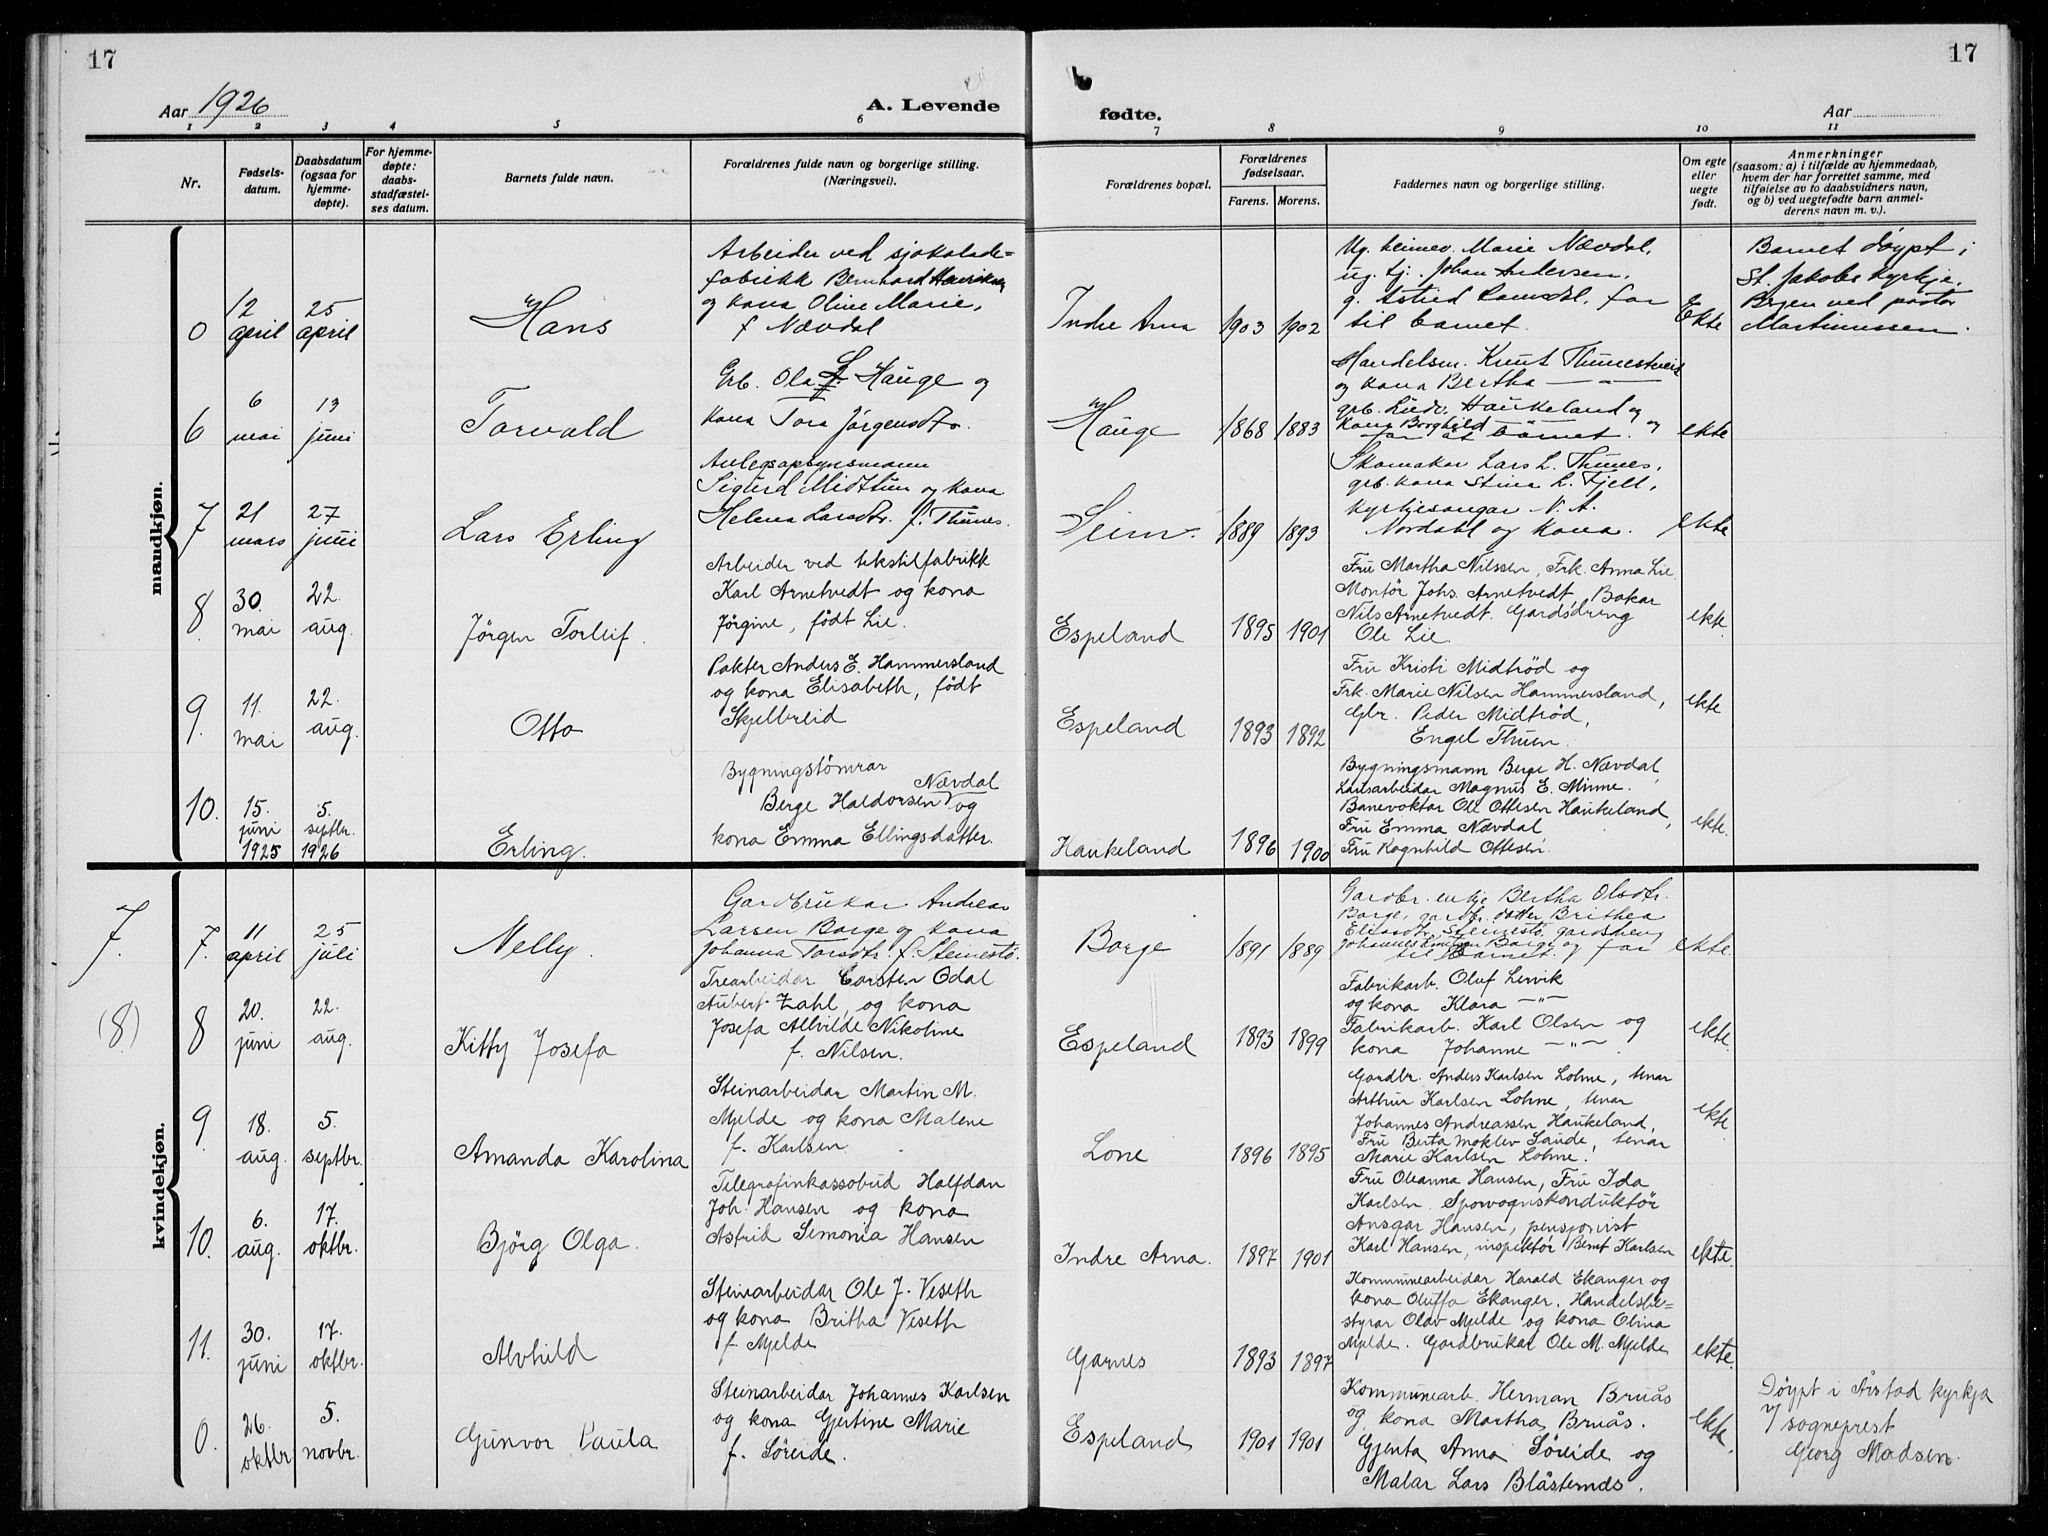 17
17
Aar 1926
A. Levende
fødte.
Aar
1 2 3 4 5 6 7 8 9 10 11
Nr.
Fødsels-
datum.
Daabsdatum
(ogsaa for
hjemme-
døpte).
For hjemme-
døpte:
daabs-
stadfæstel-
ses datum.
Barnets fulde navn.
Forældrenes fulde navn og borgerlige stilling.
(Næringsvei).
Forældrenes bopæl.
Forældrenes
fødselsaar.
Farens. Morens.
Faddernes navn og borgerlige stilling.
Om egte
eller
uegte
født.
Anmerkninger
(saasom: a) i tilfælde av hjemmedaab,
hvem der har forrettet samme, med
tilføielse av to daabsvidners navn,
og b) ved uegtefødte barn anmel-
derens navn m. v.).
mandkjøn.
0
12
april
25
april
Hans
Arbeider ved sjokolade=
fabrikk Bernhard
og kona Oline Marie,
f Nævdal
Indre Arna
1903 1902
Ug. heimev. Marie Nævdal,
ug. tj. Johan Andersen,
g. Astrid far
til barnet.
Ekte
Barnet døypt i
St. Jakobs kyrkje,
Bergen ved pastor
Martinussen.
6
6
mai
13
juni
Torvald
Grb. Ola L. Hauge og
kona Tora Jörgensdtr.
Hauge
1868 1883
Handelsm. Knut Thunestveit
og kona Bertha — " —
grb. Ludv. Haukeland og
kona Borghild og
far åt barnet.
ekte
7
21
mars
27
juni
Lars Erling
Anlegsopsynsmann
Sigurd Midttun og kona
Helena Larsdtr. f. Thunes.
Seim.
1889 1893
Skomakar Lars L. Thunes,
grb. kona Stina L. Fjell,
kyrkjesongar N. A.
Nordahl og kona.
ekte
8
30.
mai
22.
aug.
Jörgen Torleif.
Arbeider ved tekstilfabrikk
Karl Arnetvedt og kona
Jörgine, födt Lie.
Espeland
1895 1901
Fru Martha Nilssen, Frk. Anna Lie.
Montör Johs. Arnetvedt, Bakar
Nils Arnetvedt. Gardsdreng
Ole Lie.
ekte.
9.
11.
mai
22.
aug.
Otto
Pakter Anders E. Hammersland
og kona Elisabeth, födt
Skjelbreid
Espeland
1893 1892
Fru Kristi Midtröd og
Frk. Marie Nilsen Hammersland,
Gbr. Peder Midtröd,
Engel Thuen.
ekte
10.
15.
juni
1925
5.
septbr.
1926
Erling.
Bygningstömrar
Nævdal
Berge Haldorsen og
kona Emma Ellingsdatter.
Haukeland
1896 1900
Bygningsmann Berge H. Nævdal,
Lausarbeidar Magnus E. Minne.
Banevoktar Ole Ottesen Haukeland,
Fru Emma Nævdal
Fru Ragnhild Ottesen.
ekte.
kvindekjøn.
7.
7.
11
april
25
juli
Nelly.
Gardbrukar Andreas
Larsen Borge og kona
Johanna Torsdtr. f. Steinestö.
Borge
1891 1889
Gardbr. enkje Bertha Olsdtr.
Borge, gardbr. datter Brithea
Steinestö, gardsdreng
Johannes Borge og far
til barnet.
ekte.
(8.)
8
20.
juni
22.
aug.
Kitty Josefa
Trearbeidar Carsten Odal
Aubert-Zahl, og kona
Josefa Allvilde Nikoline
f. Nilsen.
Espeland
1893 1899
Fabrikarb. Oluf Lervik
og kona Klara — " —
Fabrikarb. Karl Olsen og
kona Johanne — " —
ekte.
9
18.
aug.
5.
septbr.
Amanda Karolina
Steinarbeidar Martin M.
Mjelde og kona Malene
f. Karlsen.
Lone
1896 1895
Gardbr. Anders Karlsen Lohne, tenar
Arthur Karlsen Lohne, tenar
Johannes Andreassen Haukeland,
Fru Berta Saude, tenar
Marie Karlsen Lohne.
ekte.
10.
6.
aug.
17.
oktbr.
Björg Olga.
Telegrafinkassobud Halfdan
Joh. Hansen og kona
Astrid Semonia Hansen
Indre Arna.
1897 1901
Fru Oleanna Hansen, Fru Ida
Karlsen. Sporvognskonduktör
Ansgar Hansen, pensjonist
Karl Hansen, inspektör Bernt Karlsen
ekte.
11.
30.
juni
17.
oktbr.
Alvhild
Steinarbeidar Ole J. Veseth
og kona Britha Veseth
f. Mjelde
Garnes
1893 1897
Kommunearbeidar Harald Ekanger og
kona Oluffa Ekanger. Handelsbe=
styrar Olav Mjelde og kona Olina
Mjelde. Gardbrukar Ole M. Mjelde
ekte.
0.
26.
oktbr
5.
novbr.
Gunvor Paula
Steinarbeidar Johannes Karlsen
og kona Gjertine Marie
f. Söreide.
Espeland
1901 1901
Kommunearb. Herman Bruås
og kona Martha Bruås.
Gjenta Anna Söreide og
Malar Lars Blåsternds.
ekte.
Döypt i Årstad kyrkja
v/ sogneprest
Georg Madsen.